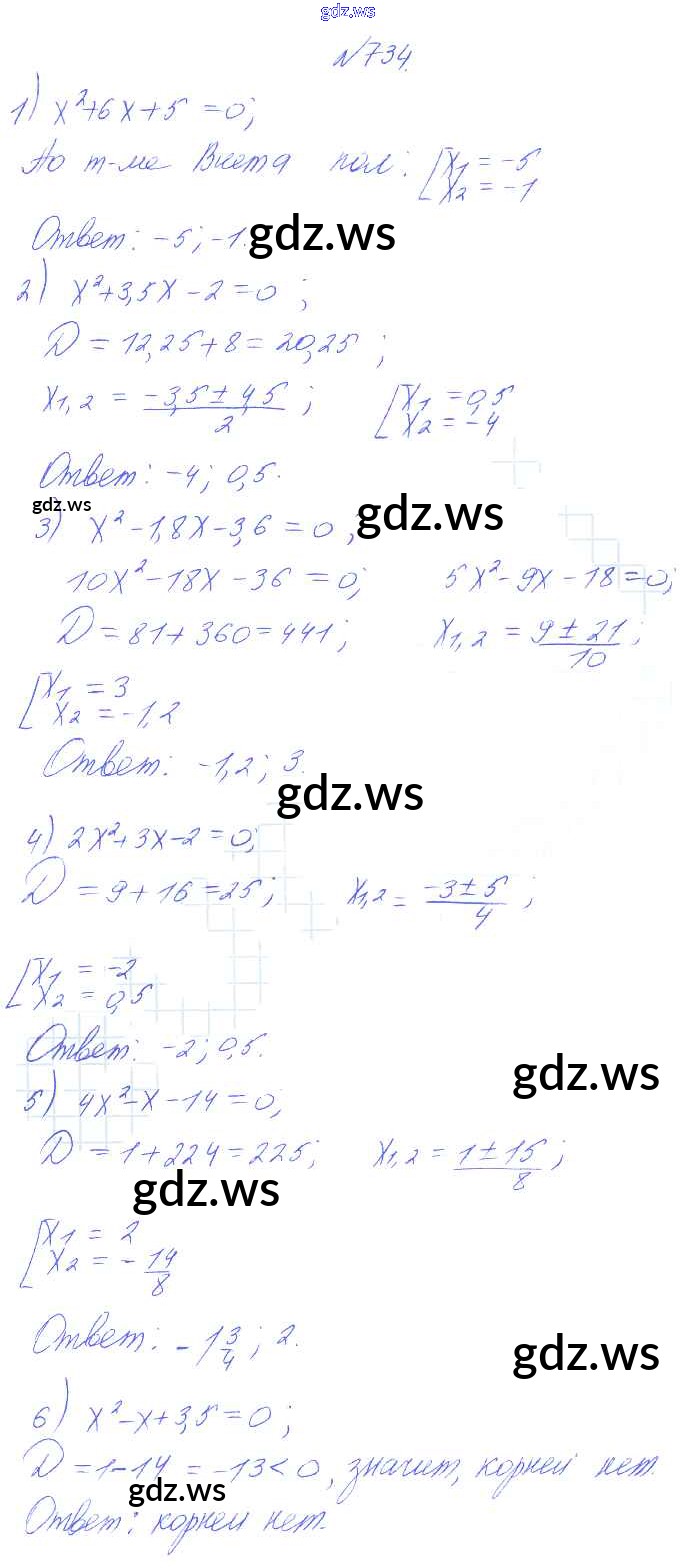 gdz.ws
№734.
1) x²+6x+5=0;
По т-ме Виета пол: [x₁ = -5
x₂ = -1
Ответ: -5; -1. gdz.ws
2) x²+3,5x-2=0;
D = 12,25+8=20,25;
x₁,₂ = (-3,5±4,5)/2; [x₁ = 0,5
x₂ = -4
Ответ: -4; 0,5.
gdz.ws gdz.ws
3) x²-1,8x-3,6=0;
10x²-18x-36=0; 5x²-9x-18=0;
D=81+360=441; x₁,₂ = (9±21)/10;
[x₁ = 3
x₂ = -1,2
Ответ: -1,2; 3.
gdz.ws
4) 2x²+3x-2=0;
D = 9+16=25; x₁,₂ = (-3±5)/4;
[x₁ = -2
x₂ = 0,5
Ответ: -2; 0,5.
gdz.ws
5) 4x²-x-14=0;
D = 1+224=225; x₁,₂ = (1±15)/8;
gdz.ws
[x₁ = 2
x₂ = -14/8
Ответ: -1 3/4; 2.
gdz.ws
6) x²-x+3,5=0;
D=1-14=-13<0, значит, корней нет.
gdz.ws
Ответ: корней нет.